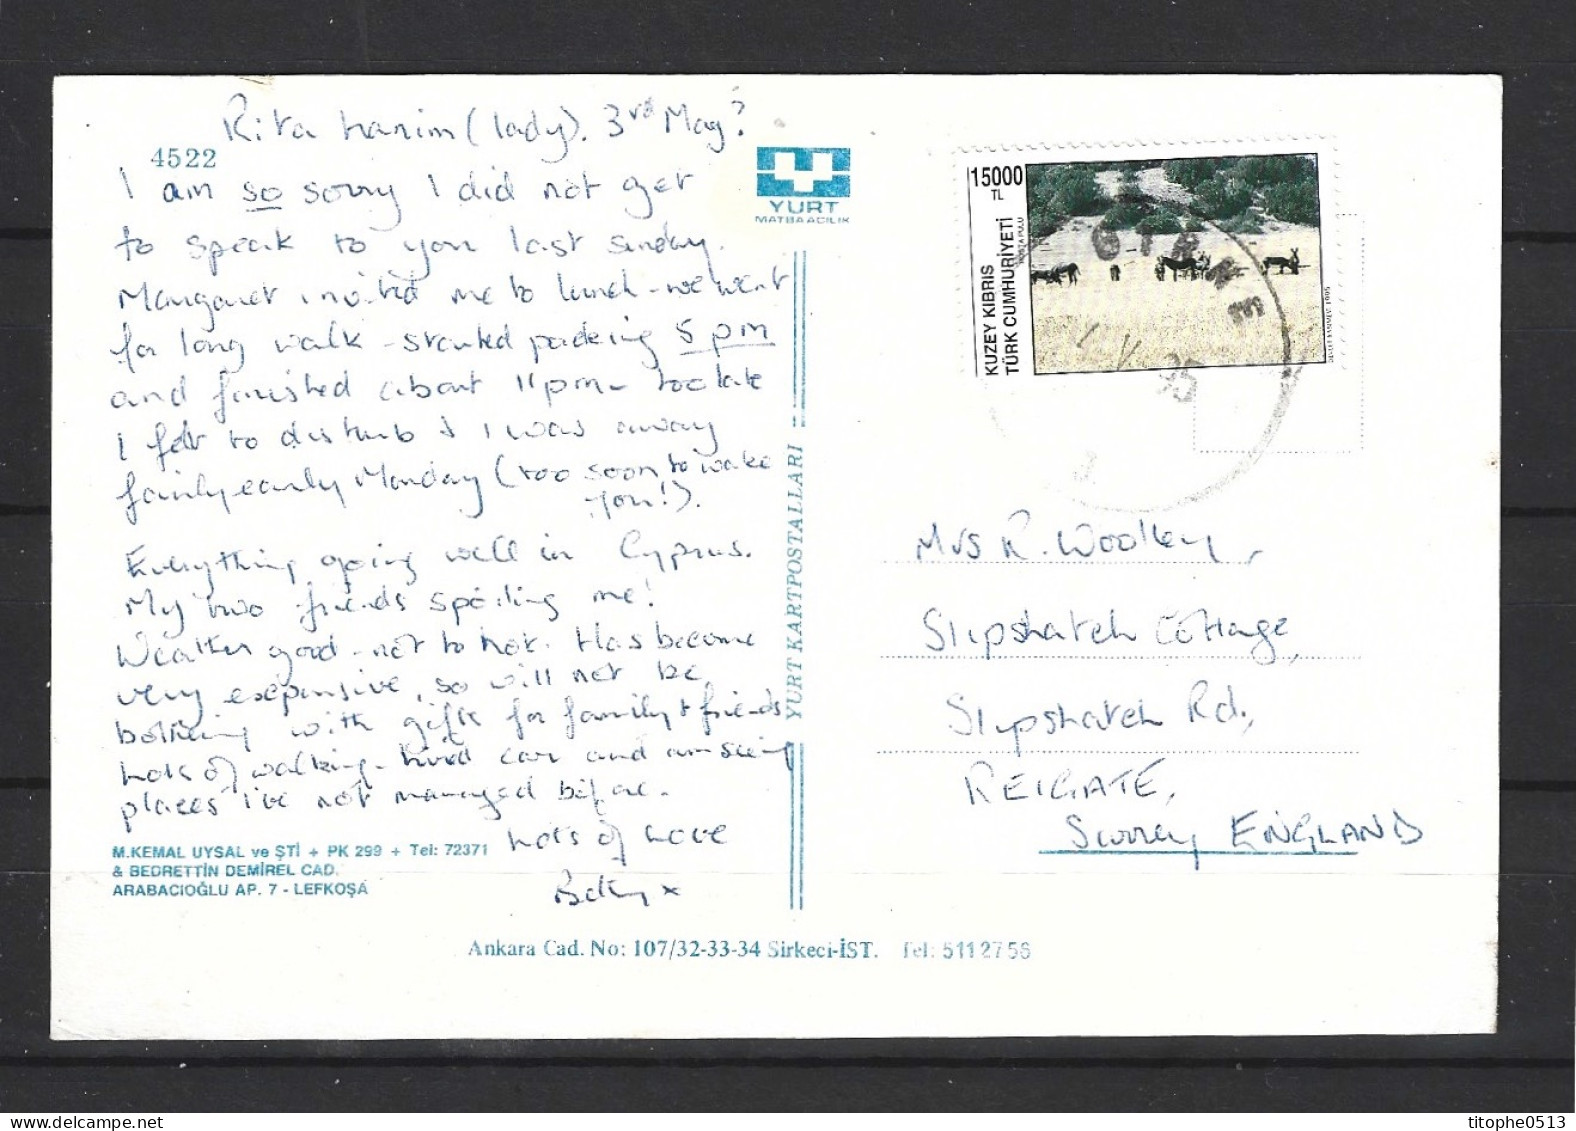 Rita hanim (lady). 3rd May?
4522
I am so sorry I did not get
to speak to you last Sunday.
Margaret invited me to lunch - we went
for long walk - started packing 5 pm
and finished about 11 pm - too late
I felt to disturb & I was away
fairly early Monday (too soon to wake
you!).
Everything going well in Cyprus.
My two friends spoiling me!
Weather good - not to hot. Has become
very expensive, so will not be
bothering with gifts for family & friends
Lots of walking - hired car and am seeing
places I've not managed before.
Lots of Love
Betty x
M.KEMAL UYSAL ve ŞTİ + PK 299 + Tel: 72371
& BEDRETTİN DEMİREL CAD.
ARABACIOĞLU AP. 7 - LEFKOŞA
YURT
MATBAACILIK
YURT KARTPOSTALLARI
Ankara Cad. No: 107/32-33-34 Sirkeci-İST. Tel: 5112756
15000
TL
KUZEY KIBRIS
TÜRK CUMHURİYETİ
GİRNE
Mrs R. Woolley,
Slipshatch Cottage,
Slipshatch Rd.,
REIGATE,
Surrey ENGLAND
titophe0513